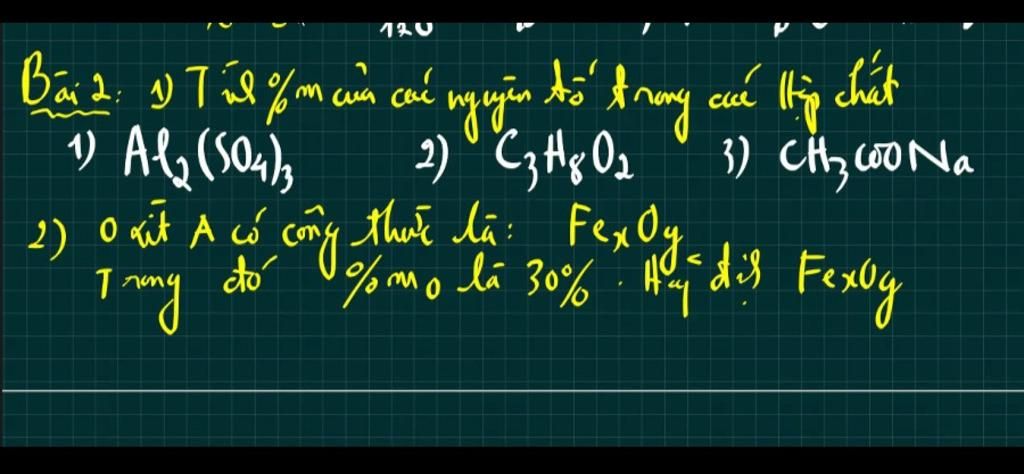 Bài 2: 1) Tính %m của các nguyên tố trong các Hợp chất
1) Al₂(SO₄)₃ 2) C₃H₈O₂ 3) CH₃COONa
2) Oxit A có công thức là: FeₓOy
Trong đó %mO là 30%. Hãy định FeₓOy